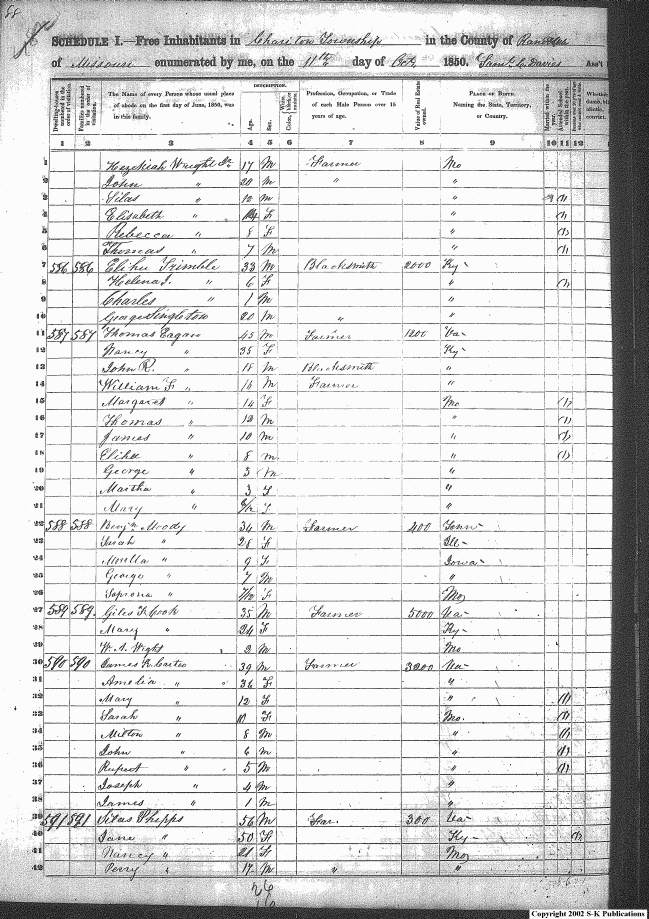 SCHEDULE I.—Free Inhabitants in Chariton Township in the County of Randolph
of Missouri enumerated by me, on the 11th day of Oct 1850. Saml C. Davies Ass't
Dwelling-houses numbered in the order of visitation. Families numbered in the order of visitation. The Name of every Person whose usual place of abode on the first day of June, 1850, was in this family. DESCRIPTION. Age. Sex. Color, White, black or mulatto. Profession, Occupation, or Trade of each Male Person over 15 years of age. Value of Real Estate owned. PLACE OF BIRTH. Naming the State, Territory, or Country. Married within the year. Whether
1 2 3 4 5 6 7 8 9 10 11 12
1 Hezekiah Wright Jr. 17 M Farmer Mo
2 John " 20 M " "
3 Silas " 12 M " 1
4 Elisabeth " F " 1
5 Rebecca " 8 F " 1
6 Thomas " 7 M " 1
7 586 586 Elihu Trimble 33 M Blacksmith 2000 Ky
8 Helena J. " 6 F " 1
9 Charles " 1 M "
10 George Singleton 20 M " "
11 587 587 Thomas Eagan 45 M Farmer 1200 Va
12 Nancy " 35 F Ky
13 John R. " 18 M Blacksmith "
14 William F " 16 M Farmer "
15 Margaret " 14 F Mo 1
16 Thomas " 12 M " 1
17 James " 10 M " 1
18 Elihu " 8 M " 1
19 George " 5 M "
20 Martha " 3 F "
21 Mary " F "
22 588 588 Benjn Moody 34 M Farmer 400 Tenn
23 Sarah " 28 F Ill
24 " 9 F Iowa
25 George " 7 M "
26 Soprona " 7/12 F Mo
27 589 589 Giles F. Cook 35 M Farmer 5000 Va
28 Mary " 24 F Ky
29 W. S. Wight 2 M Mo
30 590 590 James R. Carter 39 M Farmer 3200 Va
31 Amelia " 36 F "
32 Mary " 12 F " 1
33 Sarah " F Mo. 1
34 Milton " 8 M " 1
35 John " 6 M " 1
36 Rupert " 5 M " 1
37 Joseph " 4 M "
38 James " 1 M "
39 591 591 Silas Phipps 56 M Far. 300 Va
40 Jane " 50 F Ky 1
41 Nancy " 21 F Mo
42 Perry " 17 M " "
Copyright 2002 S-K Publications